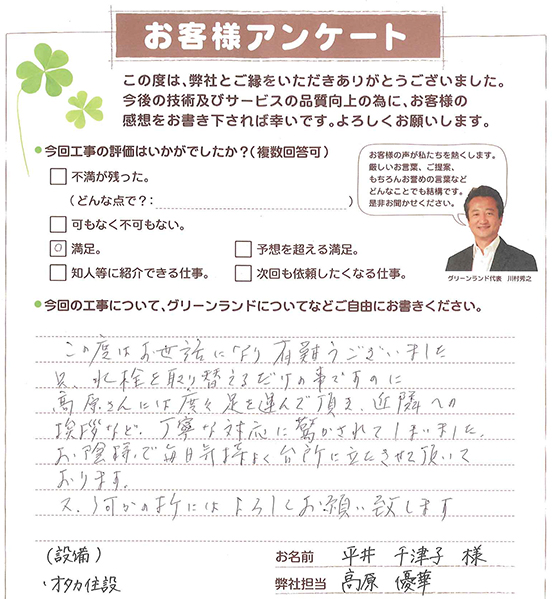 お客様アンケート
この度は、弊社とご縁をいただきありがとうございました。
今後の技術及びサービスの品質向上の為に、お客様の
感想をお書き下されば幸いです。よろしくお願いします。
●今回工事の評価はいかがでしたか?(複数回答可)
□ 不満が残った。
(どんな点で?: )
□ 可もなく不可もない。
満足。
□ 予想を超える満足。
□ 知人等に紹介できる仕事。
□ 次回も依頼したくなる仕事。
お客様の声が私たちを熱くします。
厳しいお言葉、ご提案、
もちろんお誉めの言葉など
どんなことでも結構です。
是非お聞かせください。
グリーンランド代表 川村秀之
●今回の工事について、グリーンランドについてなどご自由にお書きください。
この度はお世話になり有難うございました
只、水栓を取り替えるだけの事ですのに
高原さんには度々足を運んで頂き、近隣への
挨拶など、丁寧な対応に驚かされてしまいました。
お陰様で毎日気持よく台所に立たさせて頂いて
おります。
又、何かの折にはよろしくお願い致します
(設備)
・オタカ住設
お名前 平井 千津子 様
弊社担当 高原 優華